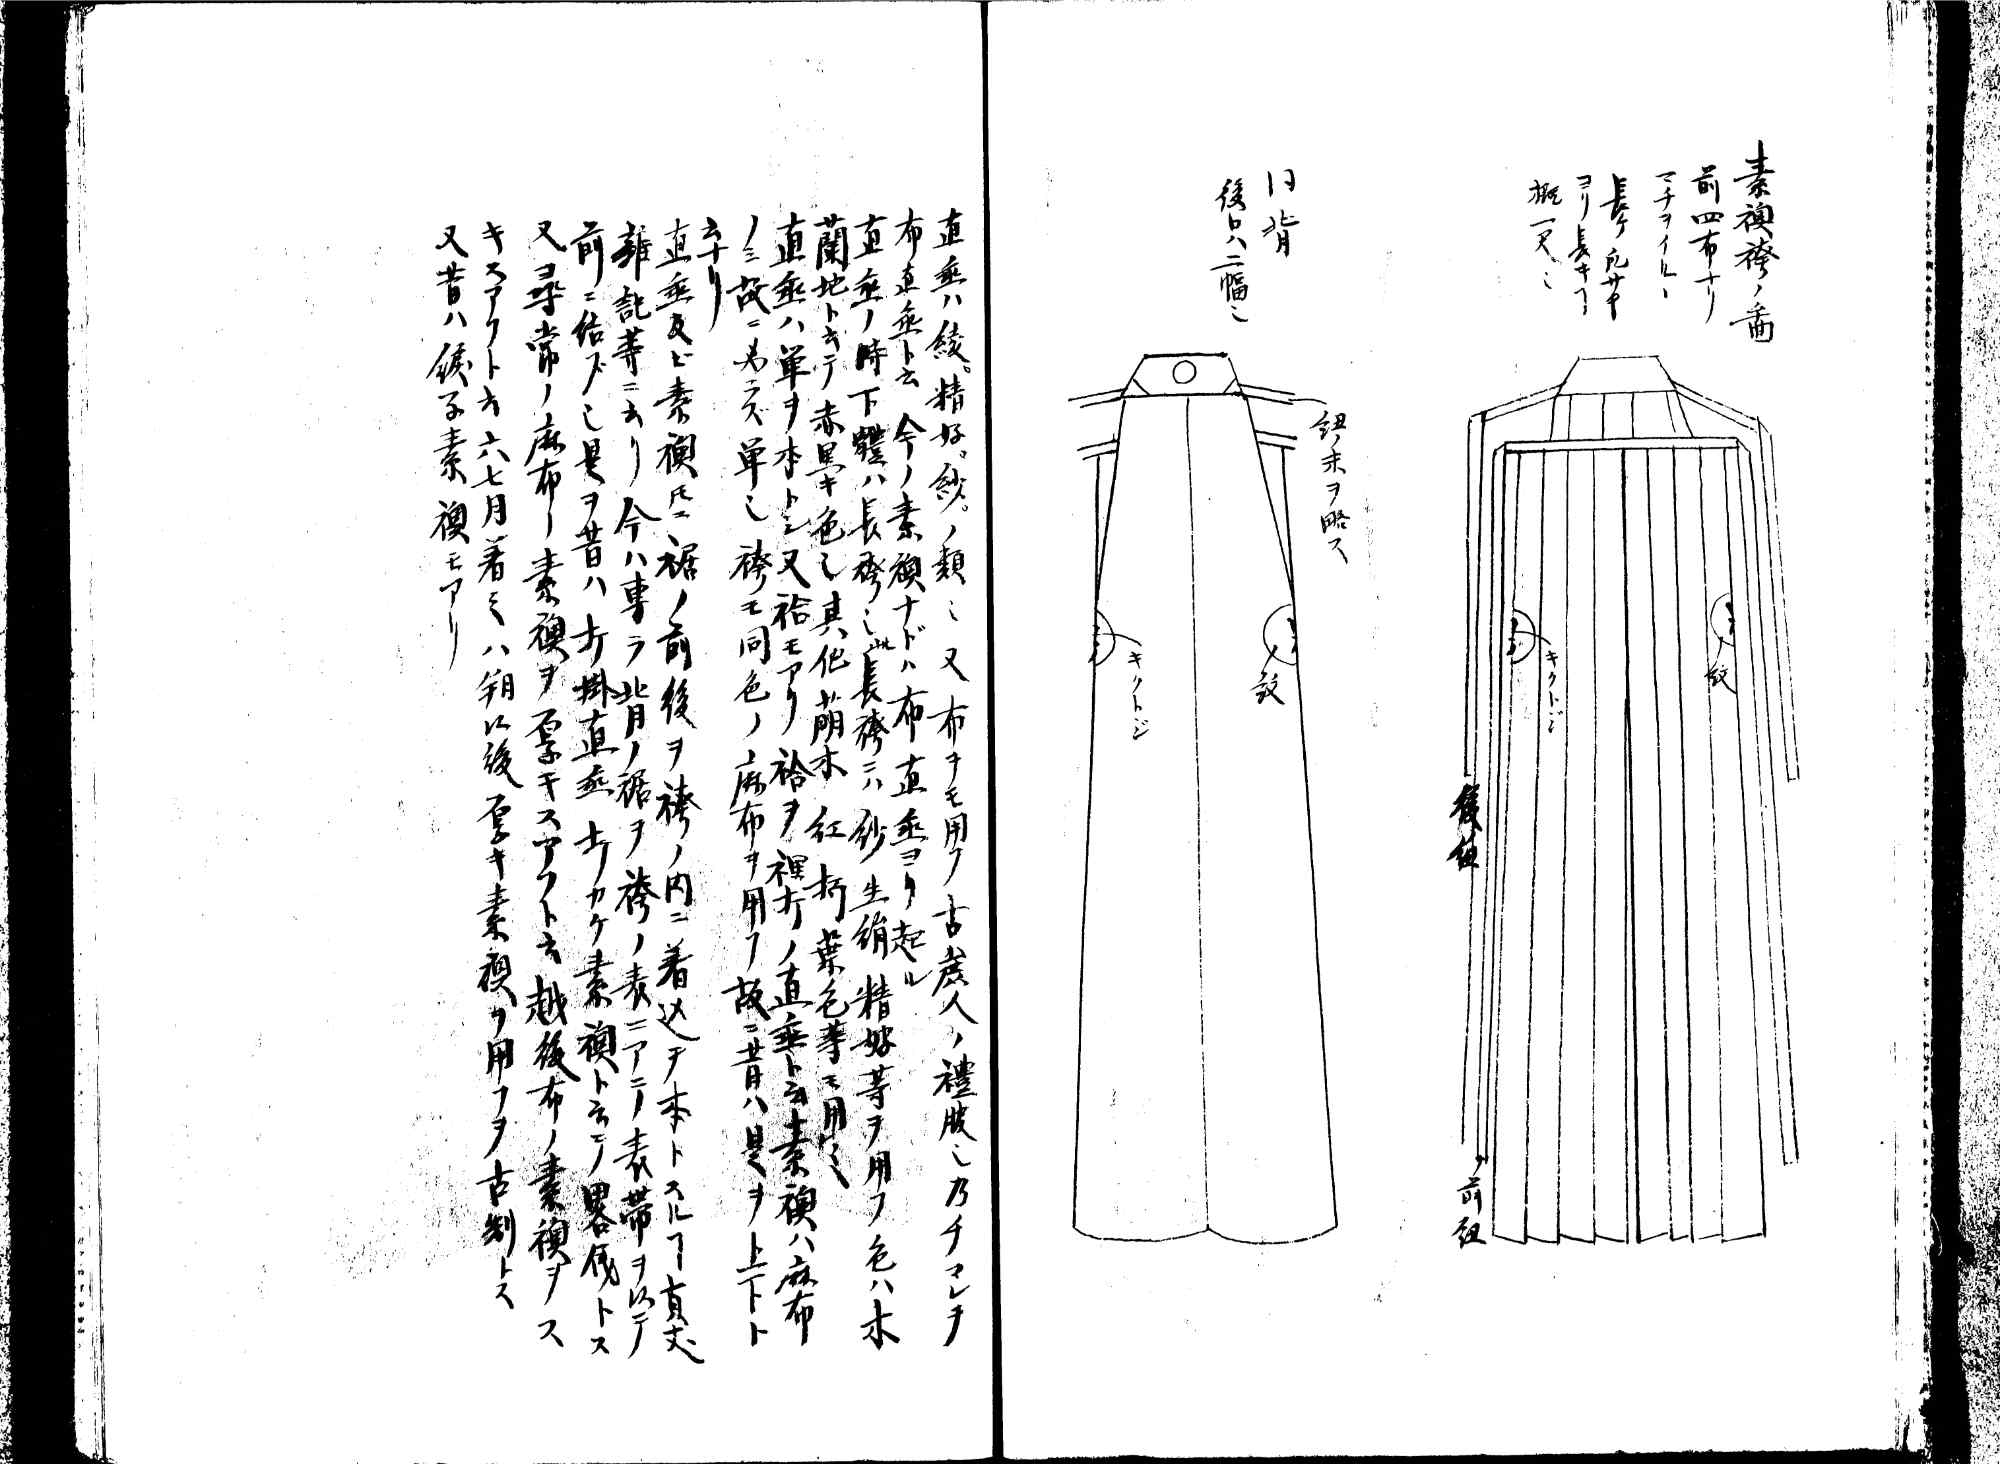 素襖袴ノ圖
前四布ナリ
マチヲイルヽ
長ケ
ヨリ長キヿ
概一尺〻
後紐
前紐
紋
キクトジ
紐末ヲ略ス
同背
後ロハ二幅〻
紋
キクトジ
直垂ハ綾。精好。紗。ノ類〻又布ヲモ用フ古庶人ノ禮服〻乃チコレヲ
布直垂ト云今ノ素襖ナドハ布直垂ヨリ起ル
直垂ノ時下體ハ長袴〻此長袴ニハ紗生絹精好等ヲ用フ色ハ木
蘭地ト云テ赤黒キ色〻其他萠木紅朽葉色等モ用〻
直垂ハ単ヲ本トシ又袷モアリ袷ヲ裡打ノ直垂ト云素襖ハ麻布
ノミ故ニ必ズ単〻袴モ同色ノ麻布ヲ用フ故ニ昔ハ是ヲ上下ト
云ナリ
直垂及ビ素襖𪜈ニ裾ノ前後ヲ袴ノ内ニ着込ヲ本トスルヿ貞丈
雜記等ニ云リ今ハ専ラ背ノ裾ヲ袴ノ表ニアニノ表帯ヲ以テ
前ニ結ブ〻是ヲ昔ハ打掛直垂打カケ素襖ト云テ畧儀トス
又尋常ノ麻布ノ素襖ヲ厚キスアフト云越後布ノ素襖ヲス
キスアフト云六七月着〻八朔以後厚キ素襖ヲ用フヲ古制トス
又昔ハ練子素襖モアリ